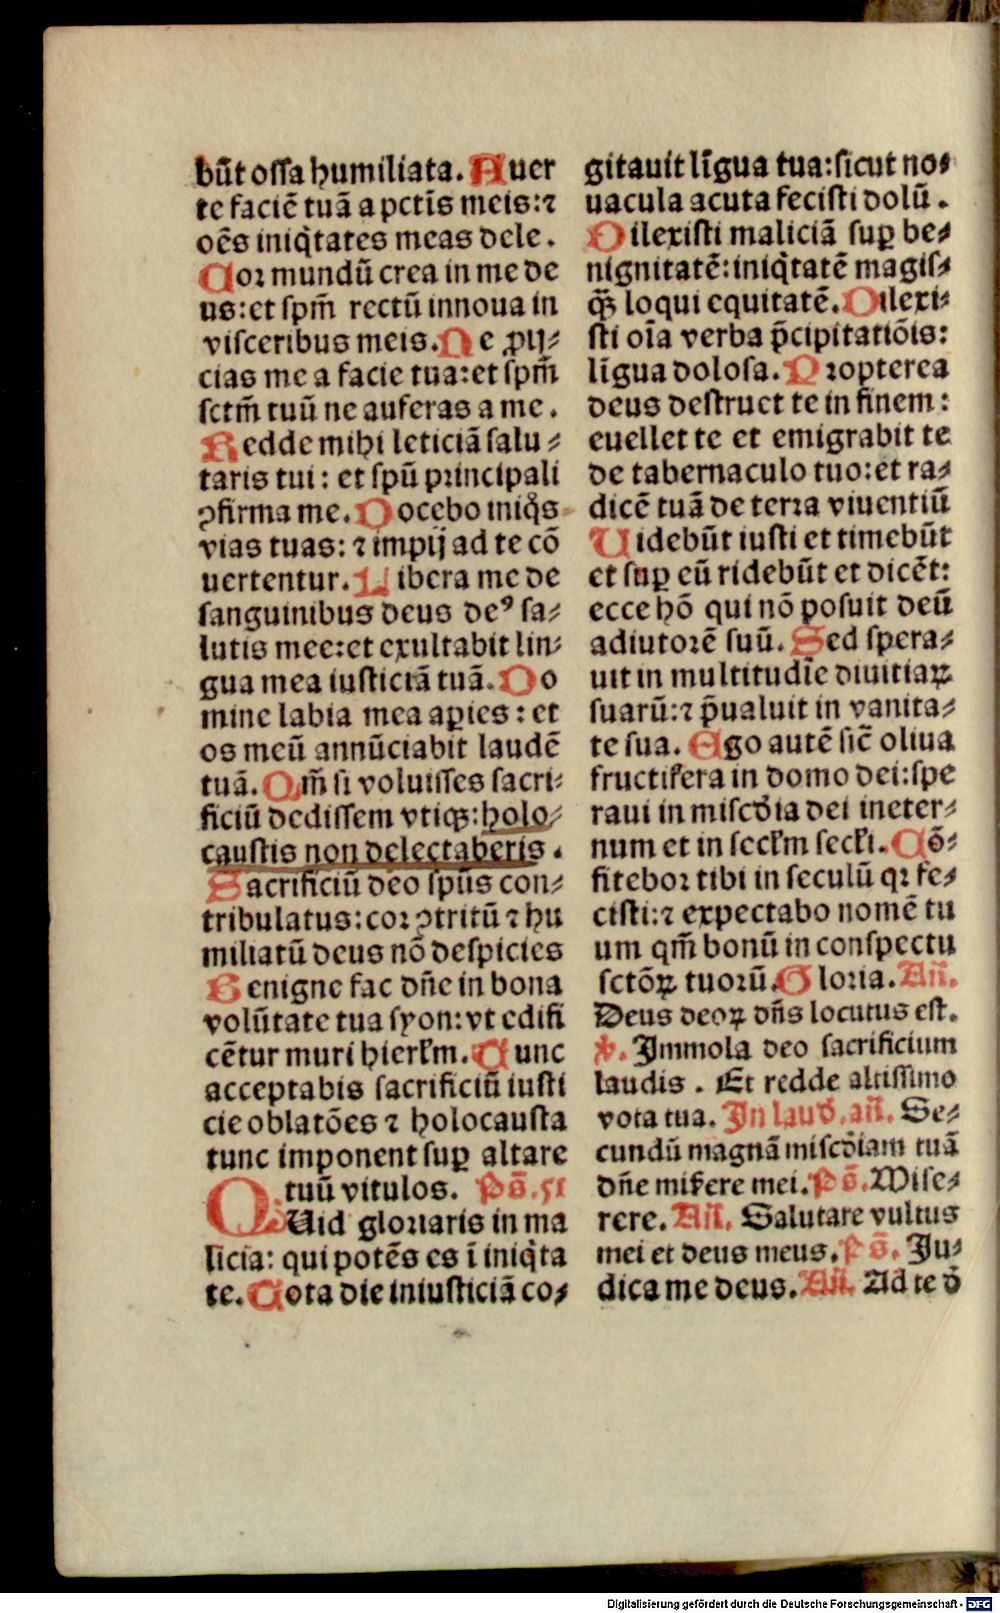 būt ossa humiliata. Auer
te faciē tuā a pctīs meis: ⁊
oēs iniq̇tates meas dele.
Cor mundū crea in me de
us: et spm̄ rectū innoua in
visceribus meis. Ne ꝓij⸗
cias me a facie tua: et spm̄
sctm̄ tuū ne auferas a me.
Redde mihi leticiā salu⸗
taris tui: et spū principali
ꝯfirma me. Docebo iniq̊s
vias tuas: ⁊ impij ad te cō
uertentur. Libera me de
sanguinibus deus deꝰ sa⸗
lutis mee: et exultabit lin⸗
gua mea iusticiā tuā. Do
mine labia mea aꝑies: et
os meū annūciabit laudē
tuā. Qm̄ si voluisses sacri⸗
ficiū dedissem vtiqꝫ: holo⸗
caustis non delectaberis.
Sacrificiū deo spūs con⸗
tribulatus: cor ꝯtritū ⁊ hu
miliatū deus nō despicies
Benigne fac dn̄e in bona
volūtate tua syon: vt edifi
cētur muri hierl̄m. Tunc
acceptabis sacrificiū iusti
cie oblatōes ⁊ holocausta
tunc imponent suꝑ altare
tuū vitulos. Ps̄. 51
QUid gloriaris in ma
licia: qui potēs es ī iniq̇ta
te. Tota die iniusticiā co⸗
gitauit līgua tua: sicut no⸗
uacula acuta fecisti dolū.
Dilexisti maliciā suꝑ be⸗
nignitatē: iniq̇tatē magis⸗
qꝫ̄ loqui equitatē. Dilexi⸗
sti oīa verba p̄cipitatiōis:
līgua dolosa. Propterea
deus destruet te in finem:
euellet te et emigrabit te
de tabernaculo tuo: et ra⸗
dicē tuā de terra viuentiū
Uidebūt iusti et timebūt
et suꝑ eū ridebūt et dicēt:
ecce hō qui nō posuit deū
adiutorē suū. Sed spera⸗
uit in multitudīe diuitiaꝝ
suarū: ⁊ p̄ualuit in vanita⸗
te sua. Ego autē sic̄ oliua
fructifera in domo dei: spe
raui in misc̄dia dei ineter⸗
num et in secl̄m secl̄i. Cō⸗
fitebor tibi in seculū qꝛ fe⸗
cisti: ⁊ expectabo nomē tu
um qm̄ bonū in conspectu
sctōꝝ tuorū. Gloria. Añ.
Deus deoꝝ dn̄s locutus est.
℣. Immola deo sacrificium
laudis. Et redde altissimo
vota tua. In laud̄. añ. Se⸗
cundū magnā misc̄diam tuā
dn̄e mis̄ere mei. Ps̄. Mise⸗
rere. Añ. Salutare vultus
mei et deus meus. Ps̄. Ju⸗
dica me deus. Añ. Ad te d̄
Digitalisierung gefördert durch die Deutsche Forschungsgemeinschaft - DFG